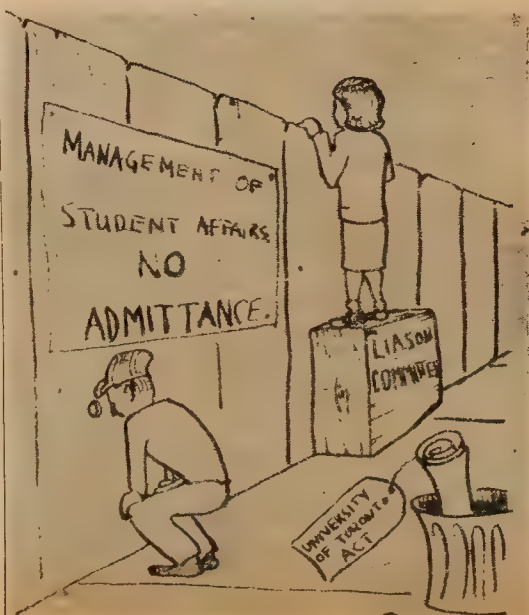 MANAGEMENT OF
STUDENT AFFAIRS
NO
ADMITTANCE.
LIASON
COMMITTEE
UNIVERSITY
OF TORONTO
ACT